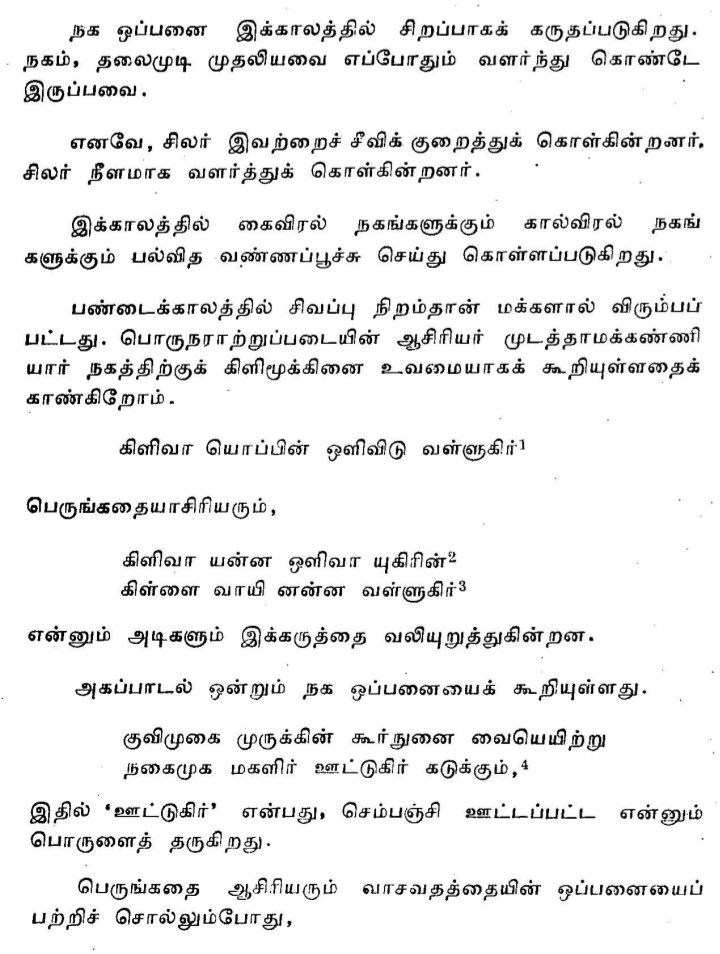 நக ஒப்பனை இக்காலத்தில் சிறப்பாகக் கருதப்படுகிறது.
நகம், தலைமுடி முதலியவை எப்போதும் வளர்ந்து கொண்டே
இருப்பவை.
எனவே, சிலர் இவற்றைச் சீவிக் குறைத்துக் கொள்கின்றனர்.
சிலர் நீளமாக வளர்த்துக் கொள்கின்றனர்.
இக்காலத்தில் கைவிரல் நகங்களுக்கும் கால்விரல் நகங்
களுக்கும் பல்வித வண்ணப்பூச்சு செய்து கொள்ளப்படுகிறது.
பண்டைக்காலத்தில் சிவப்பு நிறம்தான் மக்களால் விரும்பப்
பட்டது. பொருநராற்றுப்படையின் ஆசிரியர் முடத்தாமக்கண்ணி
யார் நகத்திற்குக் கிளிமூக்கினை உவமையாகக் கூறியுள்ளதைக்
காண்கிறோம்.
கிளிவா யொப்பின் ஒளிவிடு வள்ளுகிர்¹
பெருங்கதையாசிரியரும்,
கிளிவா யன்ன ஒளிவா யுகிரின்²
கிள்ளை வாயி னன்ன வள்ளுகிர்³
என்னும் அடிகளும் இக்கருத்தை வலியுறுத்துகின்றன.
அகப்பாடல் ஒன்றும் நக ஒப்பனையைக் கூறியுள்ளது.
குவிமுகை முருக்கின் கூர்நுனை வையெயிற்று
நகைமுக மகளிர் ஊட்டுகிர் கடுக்கும்,⁴
இதில் ‘ஊட்டுகிர்’ என்பது, செம்பஞ்சி ஊட்டப்பட்ட என்னும்
பொருளைத் தருகிறது.
பெருங்கதை ஆசிரியரும் வாசவதத்தையின் ஒப்பனையைப்
பற்றிச் சொல்லும்போது,